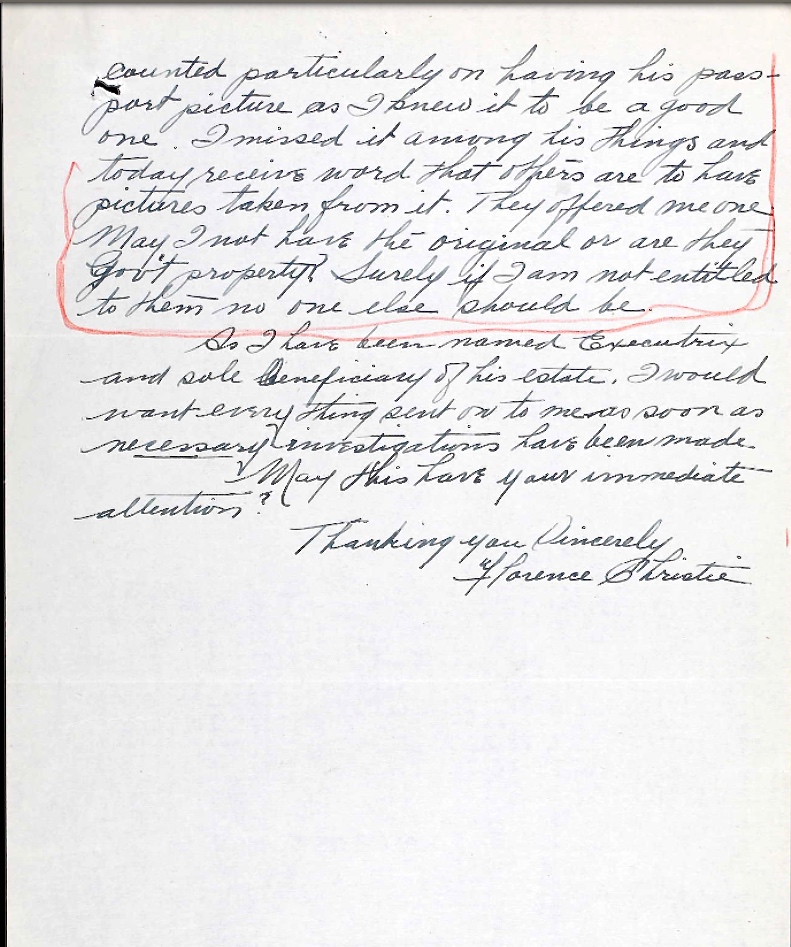 counted particularly on having his pass-
port picture as I knew it to be a good
one. I missed it among his things and
today receive word that others are to have
pictures taken from it. They offered me one
May I not have the original or are they
Gov't property? Surely if I am not entitled
to them no one else should be.
As I have been named Executrix
and sole beneficiary of his estate. I would
want every thing sent on to me as soon as
necessary investigations have been made.
May this have your immediate
attention?
Thanking you Sincerely
Florence Christie